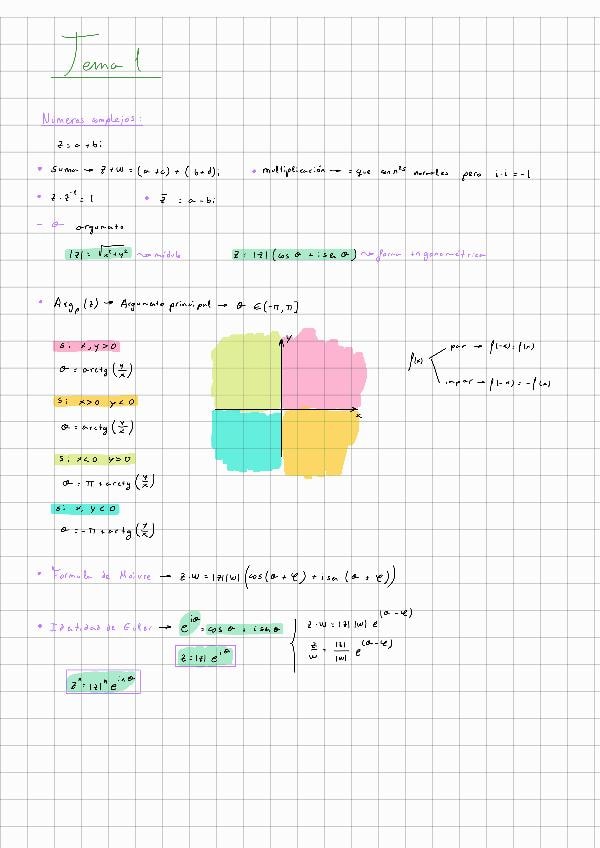 Tema 1
Números complejos:
z = a + bi
• Suma → z + w = (a + c) + (b + d)i • multiplicación → = que con nºs normales pero i·i = -1
• z·z⁻¹ = 1 • z̄ = a - bi
- θ argumento
|z| = √(x² + y²) → módulo z = |z| (cos θ + i sen θ) → forma trigonométrica
• Argₚ(z) → Argumento principal → θ ∈ (-π, π]
si x, y > 0
θ = arctg (y/x)
si x > 0 y < 0
θ = arctg (y/x)
si x < 0 y > 0
θ = π + arctg (y/x)
si x, y < 0
θ = -π + arctg (y/x)
y
x
f(x)
par → f(-x) = f(x)
impar → f(-x) = -f(x)
• Fórmula de Moivre → z·w = |z||w| (cos(θ + φ) + i sen (θ + φ))
• Identidad de Euler → e^{iθ} = cos θ + i sen θ
z = |z| e^{iθ}
z·w = |z| |w| e^{(θ - φ)}
z/w = |z|/|w| e^{(θ - φ)}
zⁿ = |z|ⁿ e^{inθ}